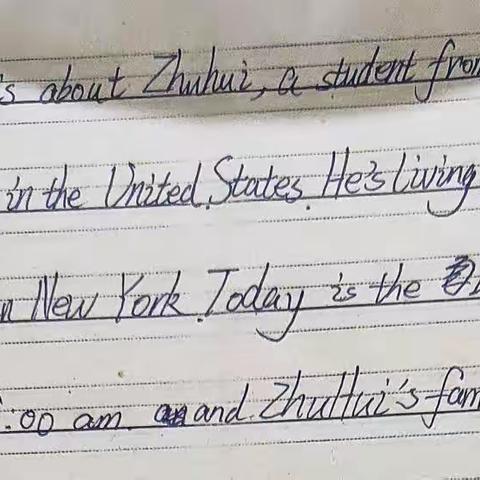 s about Zhuhui, a student from
in the United States. He's living
New York. Today is the
:00 am. and ZhuHui's fam